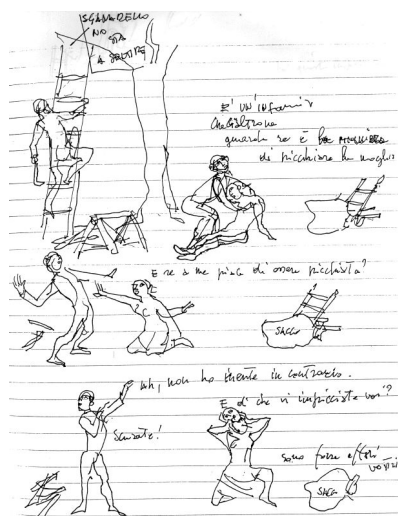 SGANARELLO
NO
STA
A SENTIRE
E' UN'infamia
Che cialtrone
guarda se è
di picchiare la moglie
E se a me piace di essere picchiata?
SACCO
Ah, non ho niente in contrario.
E di che vi impicciate voi?
Scusate!
Sono forse affari
vostri
SACCO